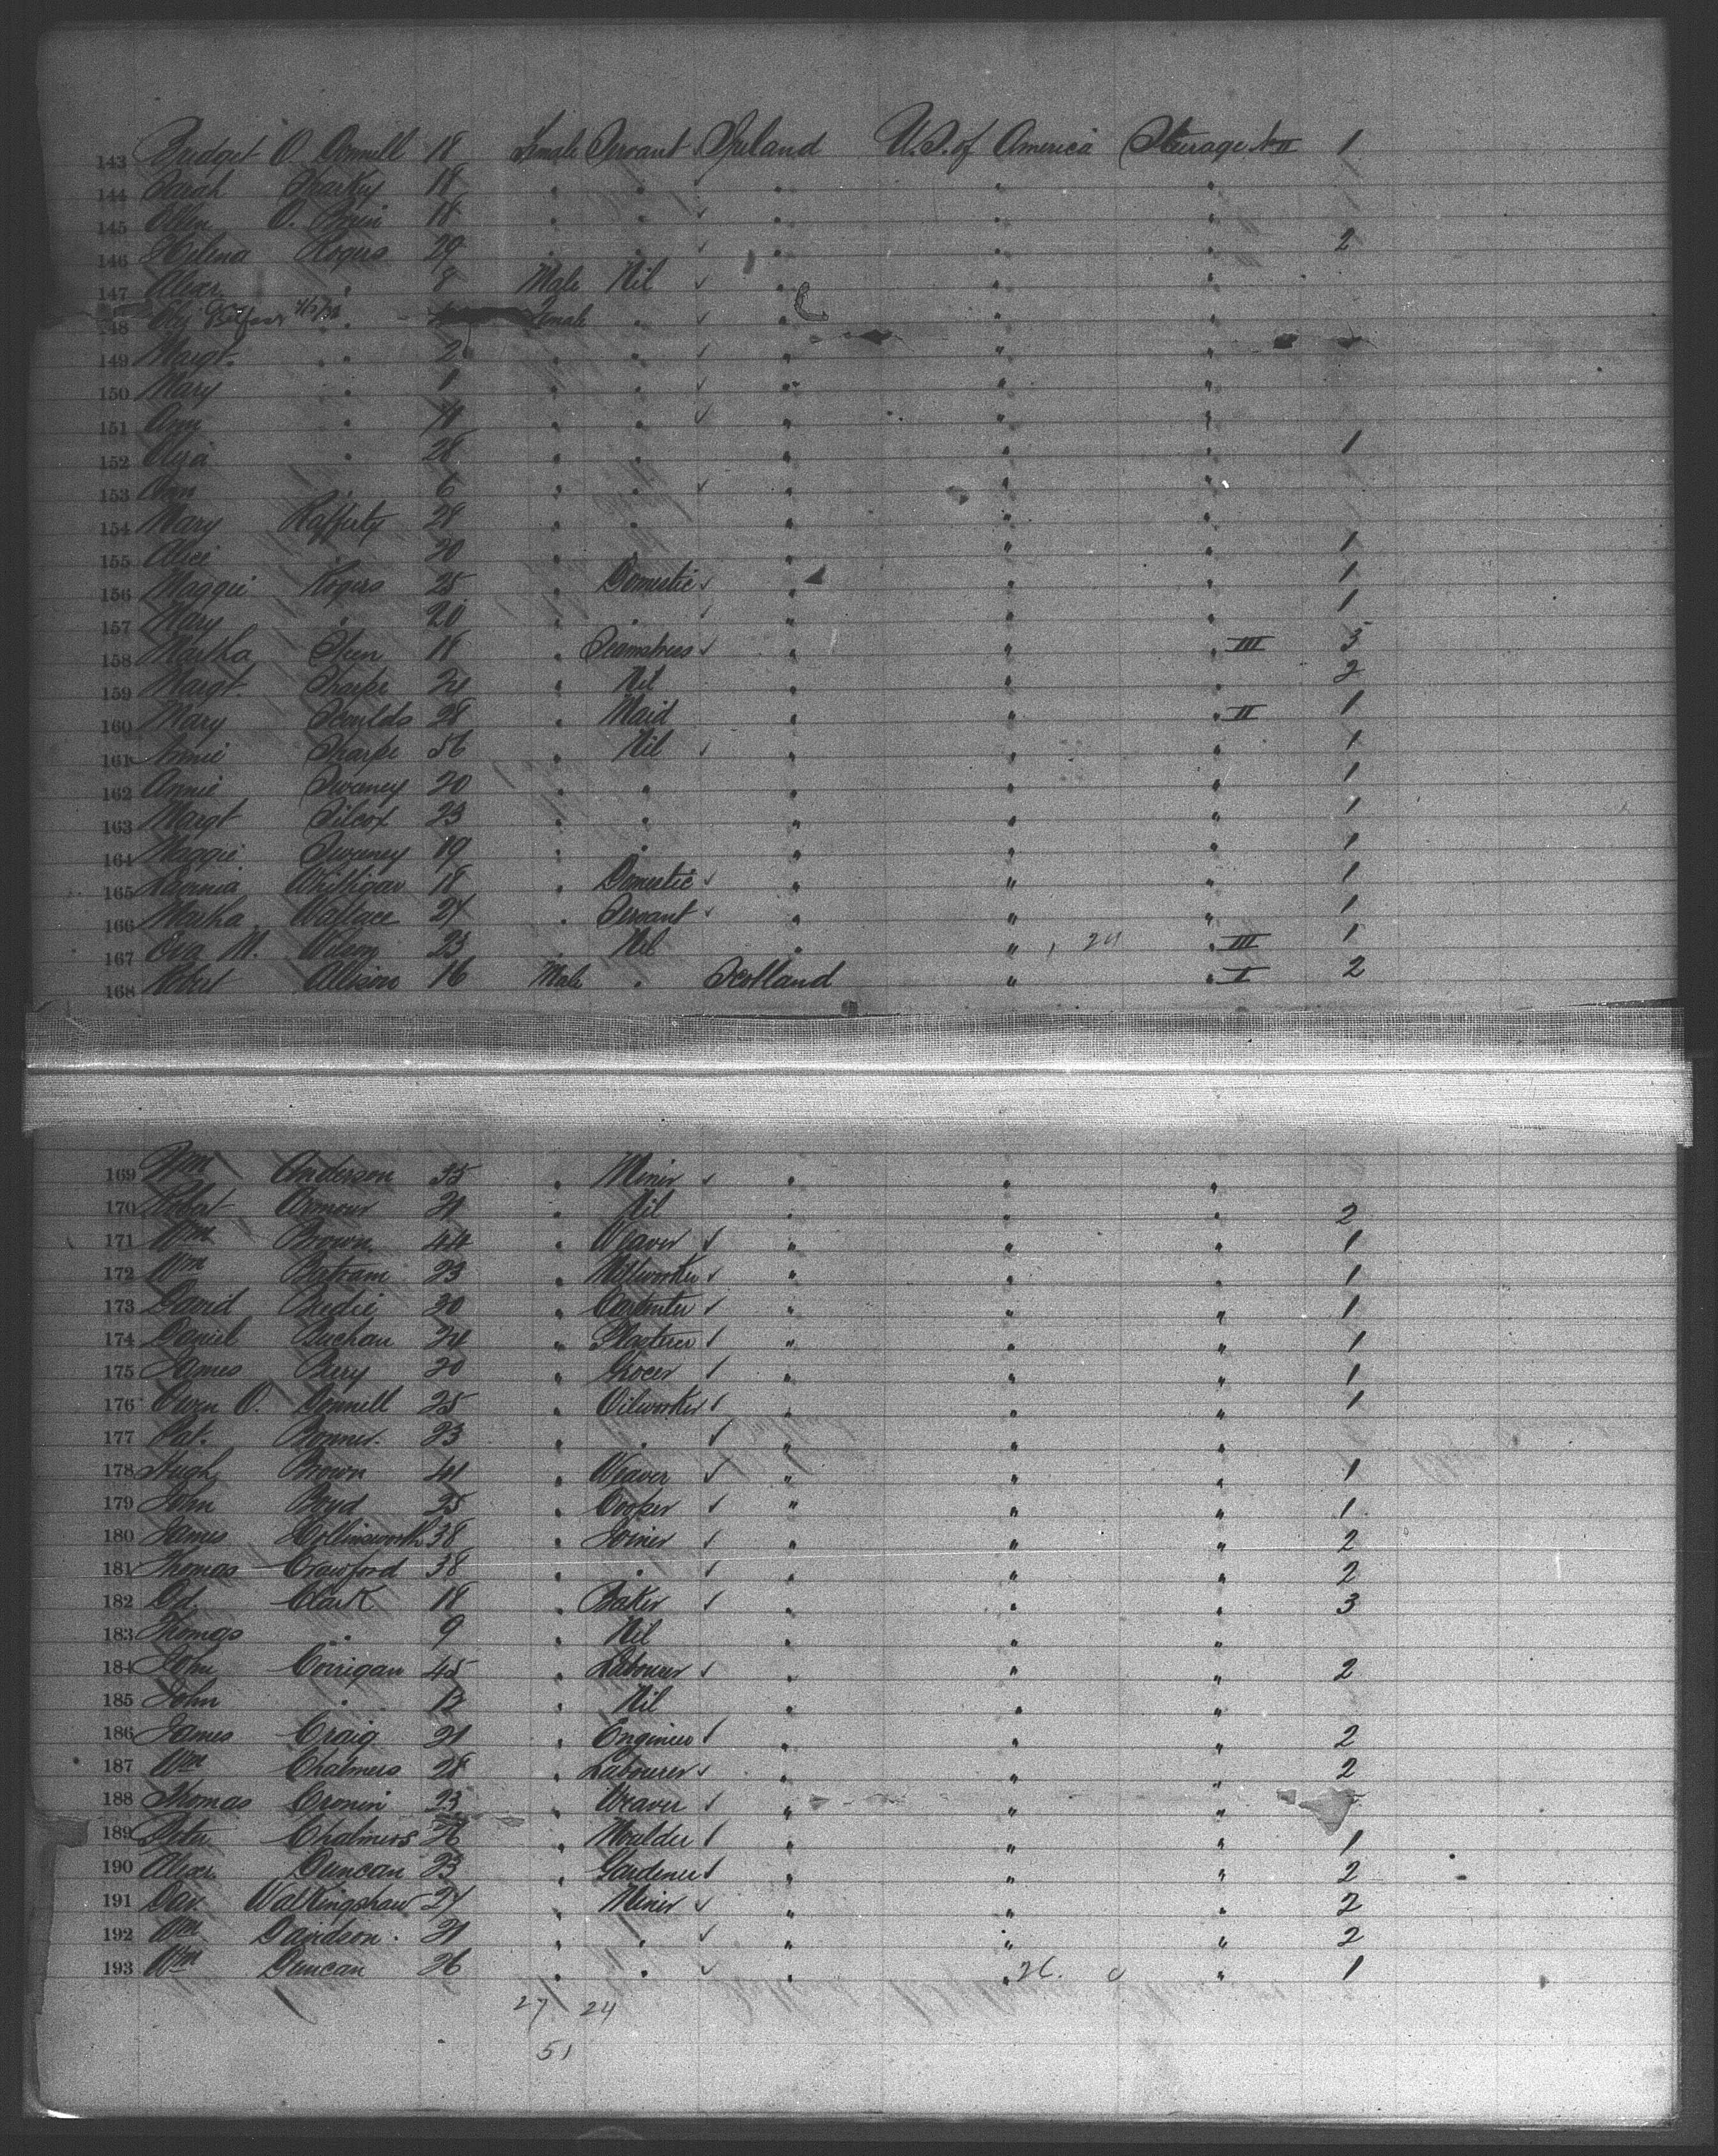 143 Bridget O. Donnell 18 Female Servant Ireland U.S. of America Steerage No II 1
144 Sarah Sharkey 18 " " " " "
145 Ellen O. Brien 18 " " " " "
146 Helena Rogers 29 " " " " " 2
147 Alexr. " 8 Male Nil " " "
148 " Female " " " "
149 Margt. " 2 " " " " "
150 Mary " 1 " " " " "
151 Amy " 11 " " " " "
152 Eliza " 28 " " " " " 1
153 Ann " 6 " " " " "
154 Mary Rafferty 29 " " " " "
155 Alice " 20 " " " " " 1
156 Maggie Rogers 25 " Domestic " " " 1
157 Mary " 20 " " " " " 1
158 Martha Steen 18 " Seamstress " " " III 3
159 Margt. Sharpe 24 " Nil " " " 2
160 Mary 28 " Maid " " " II 1
161 Annie Sharpe 56 " Nil " " " 1
162 Annie Sweeney 20 " " " " " 1
163 Margt Silcox 23 " " " " " 1
164 Maggie Sweeney 19 " " " " " 1
165 Lavinia 18 " Domestic " " " 1
166 Martha Wallace 24 " Servant " " " 1
167 Eva M. Wilson 23 " Nil " " 24 " III 1
168 Robert Allison 16 Male " Scotland " " I 2
169 Wm Anderson 35 " Miner " " "
170 Robert Armour 21 " Nil " " " 2
171 Wm Brown 44 " Weaver " " " 1
172 Wm Bertram 23 " Millworker " " " 1
173 David Brodie 30 " Carpenter " " " 1
174 Daniel Buchan 24 " Plasterer " " " 1
175 James Berry 20 " Grocer " " " 1
176 Owen O. Donnell 25 " Oilworker " " " 1
177 Pat. Bonner. 23 " " " " "
178 Hugh Brown 41 " Weaver " " " 1
179 John Boyd 25 " Cooper " " " 1
180 James Hollinsworth 38 " Joiner " " " 2
181 Thomas Crawford 38 " " " " " 2
182 Ed. Clark 18 " Baker " " " 3
183 Thomas " 9 " Nil " " "
184 John Corrigan 45 " Labourer " " " 2
185 John " 12 " Nil " " "
186 James Craig 21 " Engineer " " " 2
187 Wm Chalmers 28 " Labourer " " " 2
188 Thomas Cronin 23 " Weaver " " "
189 Peter Chalmers 26 " Moulder " " " 1
190 Alexr. Duncan 23 " Gardener " " " 2
191 Dav. Walkingshaw 24 " Miner " " " 2
192 Wm Davidson 21 " " " " " 2
193 Wm Duncan 26 " " " " 26. " 1
27 24
51